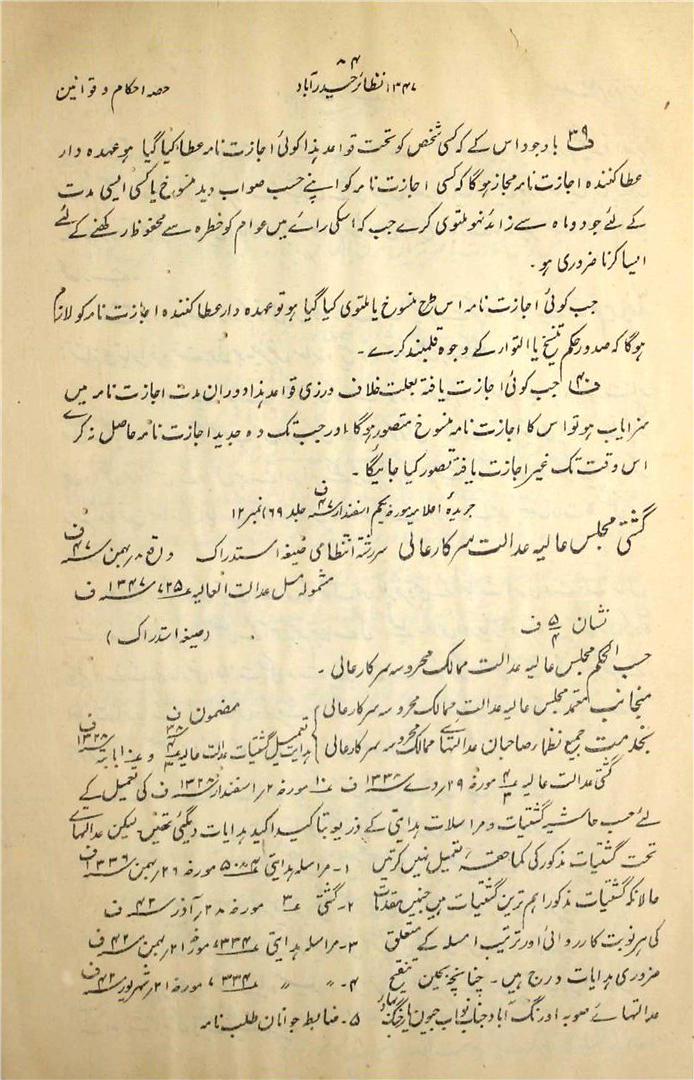 ۸۴
حصہ احکام و قوانین
نظائر حیدرآباد ۱۳۴۷
ف۳۹ باوجود اس کے کہ کسی شخص کو تحت قواعد ہذا کوئی اجازت نامہ عطا کیا گیا ہو عہدہ دار
عطا کنندہ اجازت نامہ مجاز ہوگا کہ کسی اجازت نامہ کو اپنے حسب صواب دید منسوخ یا کسی ایسی مدت
کے لئے جو دو ماہ سے زائد نہو ملتوی کرے جب کہ اسکی رائے میں عوام کو خطرہ سے محفوظ رکھنے کے لئے
ایسا کرنا ضروری ہو۔
جب کوئی اجازت نامہ اس طرح منسوخ یا ملتوی کیا گیا ہو تو عہدہ دار عطا کنندہ اجازت نامہ کو لازم
ہوگا کہ صدور حکم تنسیخ یا التوار کے وجوہ قلمبند کرے۔
ف۴۰ جب کوئی اجازت یافتہ بعلت خلاف ورزی قواعد ہذا دوران مدت اجازت نامہ میں
سزایاب ہو تو اس کا اجازت نامہ منسوخ متصور ہوگا اور جب تک وہ جدید اجازت نامہ حاصل نہ کرے
اس وقت تک غیر اجازت یافتہ تصور کیا جائیگا۔
جریدۂ اعلامیہ مورخہ یکم اسفندار ۴۷ ف جلد (۶۹) نمبر ۱۲
گشتی مجلس عالیہ عدالت سرکار عالی سررشتہ انتظامی صیغہ استدراک واقع ۸؍ بہمن ۴۷ ف
مشمولہ مسل عدالت العالیہ ۲۵ ۱۳۴۷ ف
نشان ۵/۴ ف
(صیغہ استدراک)
حسب الحکم مجلس عالیہ عدالت ممالک محروسہ سرکار عالی۔
منجانب معتمد مجلس عالیہ عدالت ممالک محروسہ سرکار عالی
مضمون
بخدمت جمیع نظار صاحبان عدالتہائے ممالک محروسہ سرکار عالی
ہدایت تعمیل گشتیات عدالت عالیہ ۱۳۲۸ ف
گشتی عدالت عالیہ ۴/۳ مورخہ ۲۹؍ دے ۱۳۳۸ ف ۱۰ مورخہ ۲؍ اسفندار ۱۳۲۸ ف کی تعمیل کے
لئے حسب حاشیہ گشتیات و مراسلات ہدایتی کے ذریعہ تاکید اکید ہدایات دیگئی تھیں لیکن عدالتہائے
تحت گشتیات مذکور کی کماحقہ تعمیل نہیں کرتیں
۱۔ مراسلہ ہدایتی ۵۰۸۴ مورخہ ۲۶؍ بہمن ۱۳۳۶ ف
حالانکہ گشتیات مذکور اہم ترین گشتیات ہیں جنمیں مقدمات
۲۔ گشتی ۳ مورخہ ۲۸؍ آذر ۴۲ ف
کی ہر نوبت کارروائی اور ترتیب امسلہ کے متعلق
۳۔ مراسلہ ہدایتی ۳۳۴ مورخہ ۲۱؍ بہمن ۴۲ ف
ضروری ہدایات درج ہیں۔ چنانچہ بحین تنقیح
۴۔ 〃 〃 ۳۳۴ مورخہ ۲۱؍ شہریور ۴۲ ف
عدالتہائے صوبہ اورنگ آباد جناب نواب جیون یار جنگ بہادر
۵۔ ضابطہ جوانان طلب نامہ